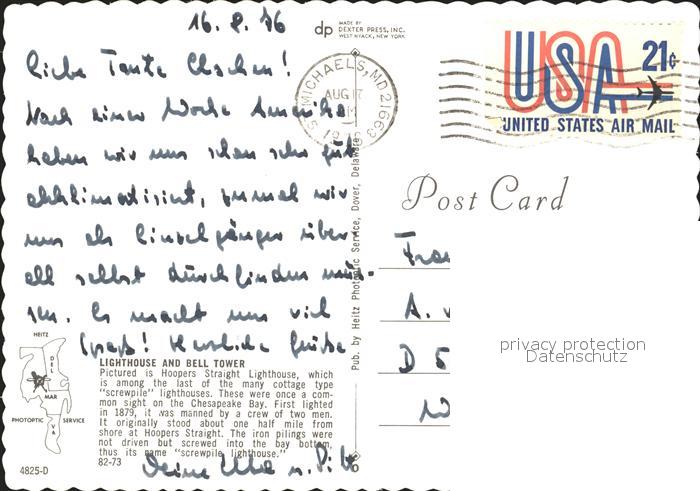 16. 8. 76
dp MADE BY
DEXTER PRESS, INC.
WEST NYACK, NEW YORK
Liebe Tante
Nach einer Woche Amerika
haben wir uns schon sehr gut
akklimatisiert, zumal wir
uns als Einzelgänger über-
all selbst durchfinden müs-
sen. Es macht uns viel
Spaß! Herzliche Grüße
Deine u.
ST. MICHAELS, MD 21663
AUG 17
USA 21¢
UNITED STATES AIR MAIL
Post Card
Frau
A.
D 5
privacy protection
Datenschutz
Pub. by Heitz Photoptic Service, Dover, Delaware
HEITZ
DEL
MAR
VA
PHOTOPTIC SERVICE
LIGHTHOUSE AND BELL TOWER
Pictured is Hoopers Straight Lighthouse, which
is among the last of the many cottage type
"screwpile" lighthouses. These were once a com-
mon sight on the Chesapeake Bay. First lighted
in 1879, it was manned by a crew of two men.
It originally stood about one half mile from
shore at Hoopers Straight. The iron pilings were
not driven but screwed into the bay bottom,
thus its name "screwpile lighthouse."
82-73
4825-D